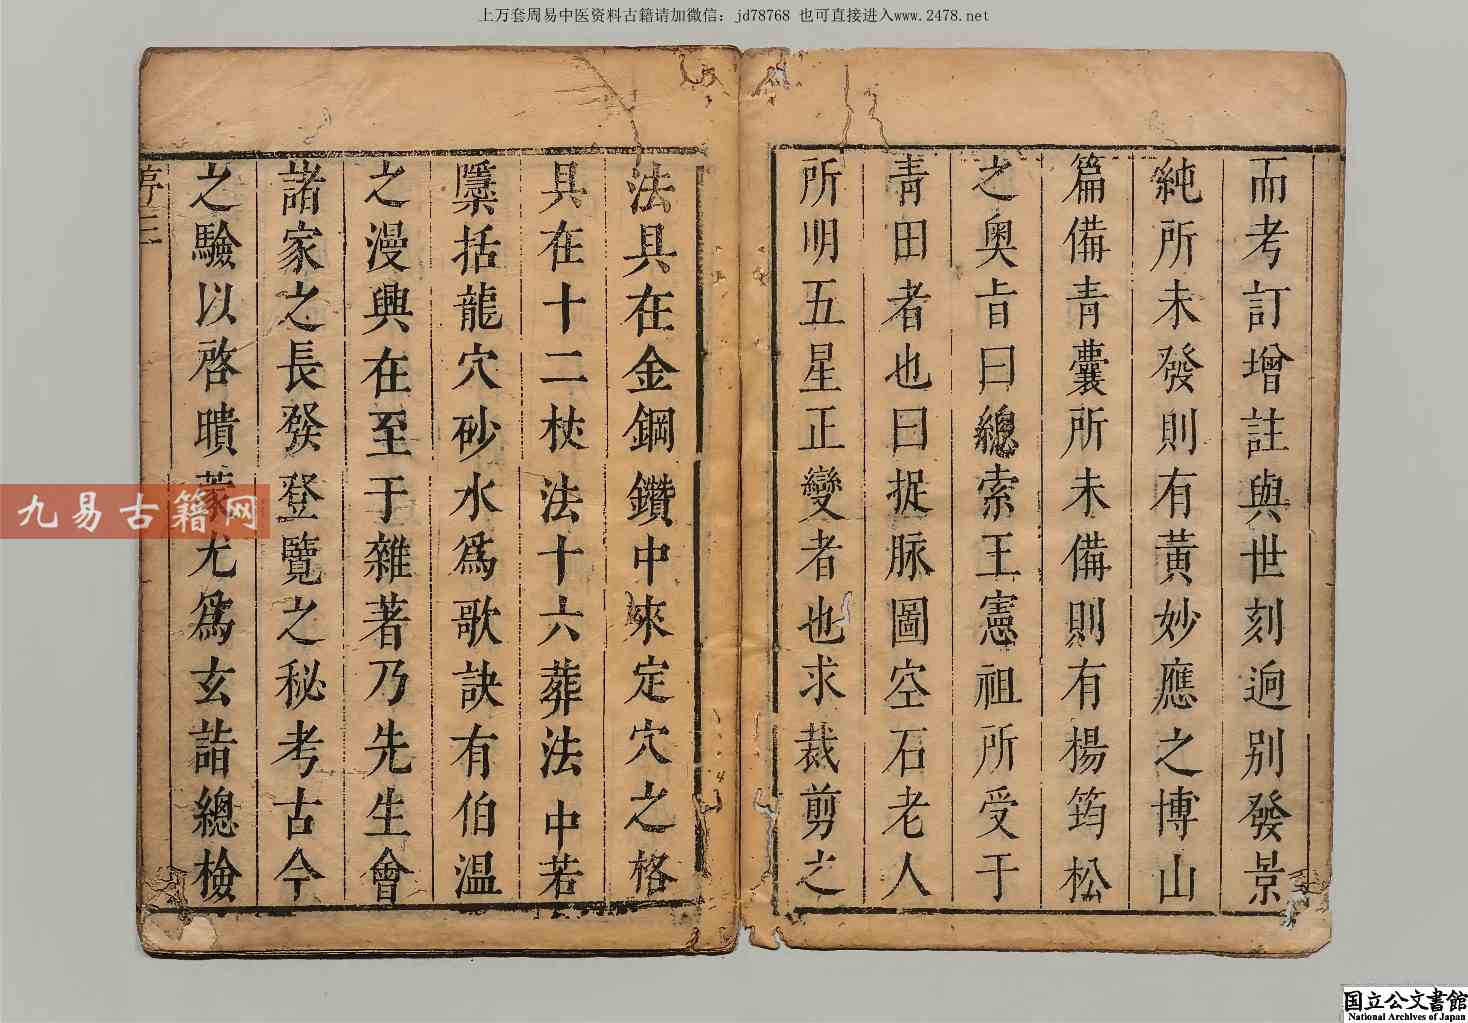 上万套周易中医资料古籍请加微信：jd78768 也可直接进入www.2478.net
而考訂增註與世刻逈别發景
純所未發則有黃妙應之博山
篇備青囊所未備則有楊筠松
之奧旨曰總索王憲祖所受于
青田者也曰捉脉圖空石老人
所明五星正變者也求裁剪之
法具在金鋼鑽中來定穴之格
具在十二杖法十六葬法中若
檃括龍穴砂水爲歌訣有伯温
之漫興在至于雜著乃先生會
諸家之長發登覽之秘考古今
之驗以啓瞶蒙尤爲玄詣總檢
序三
九易古籍网
国立公文書館
National Archives of Japan